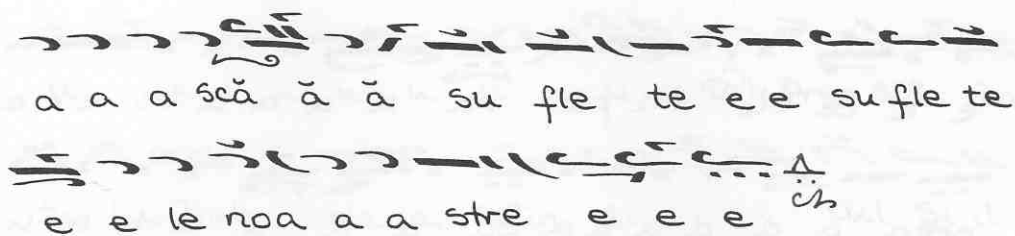 a a a scă ă ă su fle te e e su fle te
e e le noa a a stre e e e